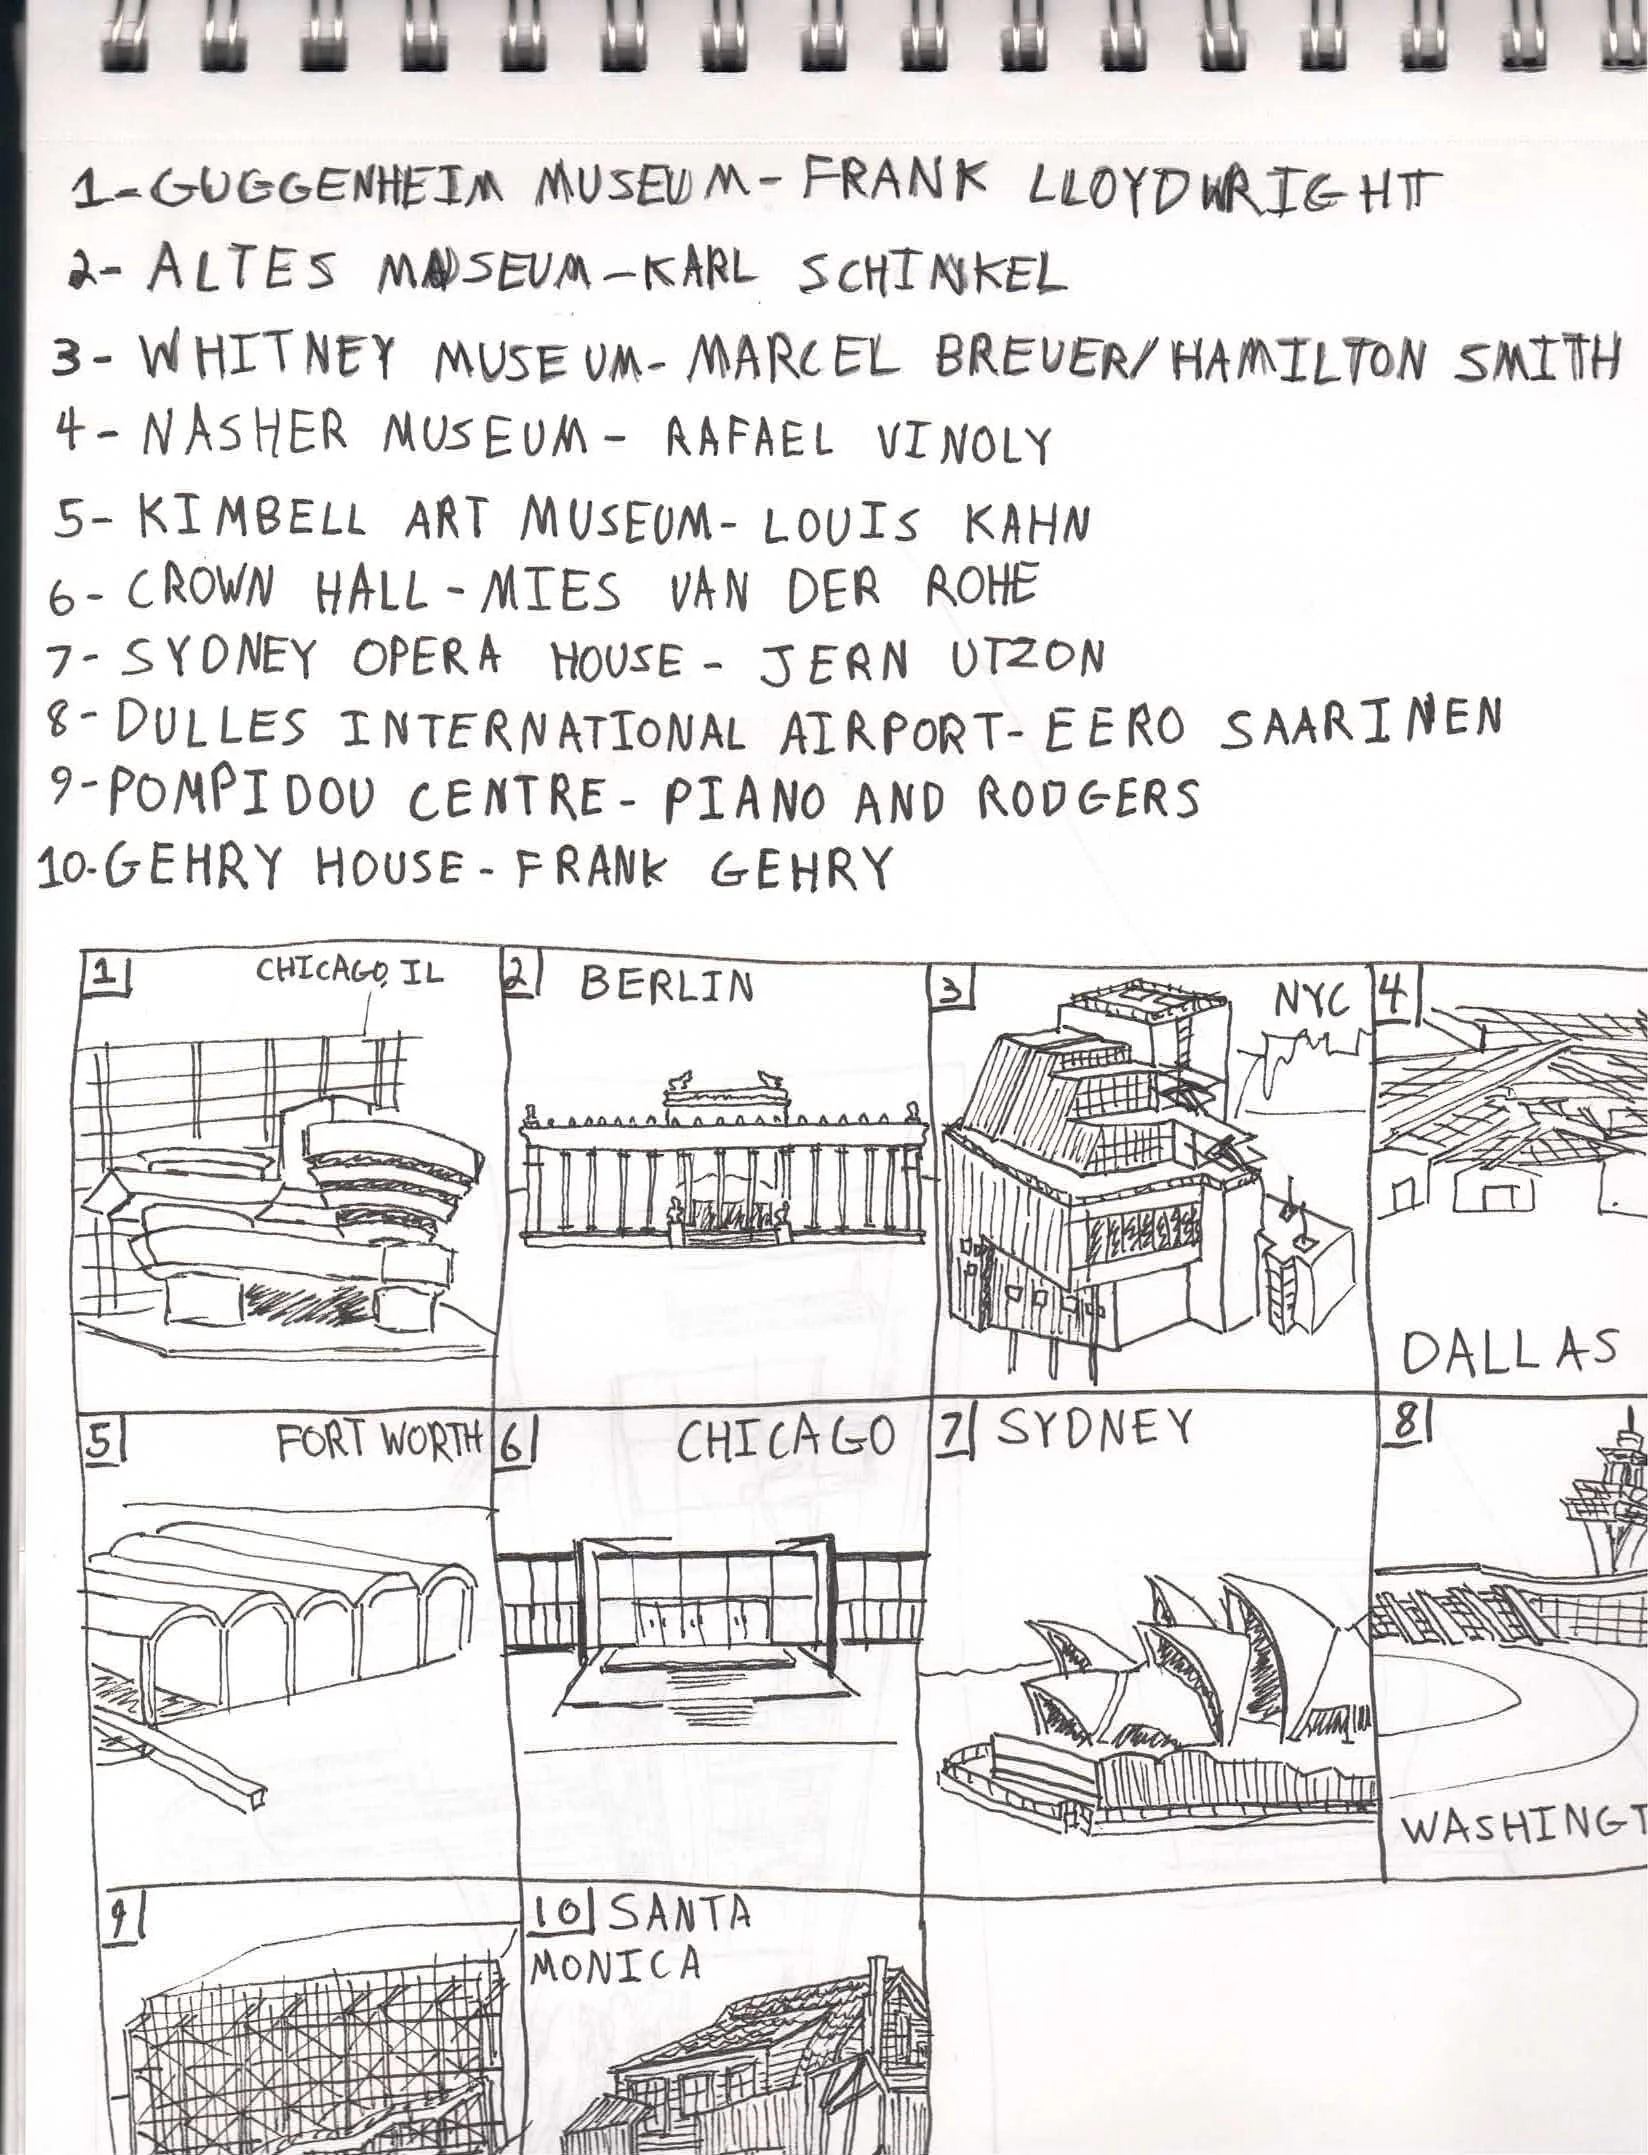 1-GUGGENHEIM MUSEUM-FRANK LLOYD WRIGHT
2- ALTES MUSEUM-KARL SCHINKEL
3- WHITNEY MUSEUM- MARCEL BREUER/HAMILTON SMITH
4- NASHER MUSEUM- RAFAEL VINOLY
5- KIMBELL ART MUSEUM- LOUIS KAHN
6- CROWN HALL-MIES VAN DER ROHE
7- SYDNEY OPERA HOUSE - JERN UTZON
8-DULLES INTERNATIONAL AIRPORT-EERO SAARINEN
9-POMPIDOU CENTRE- PIANO AND RODGERS
10-GEHRY HOUSE-FRANK GEHRY
1 CHICAGO, IL
2 BERLIN
3 NYC
4
DALLAS
5 FORT WORTH
6 CHICAGO
7 SYDNEY
8
WASHINGT
9
10 SANTA
MONICA